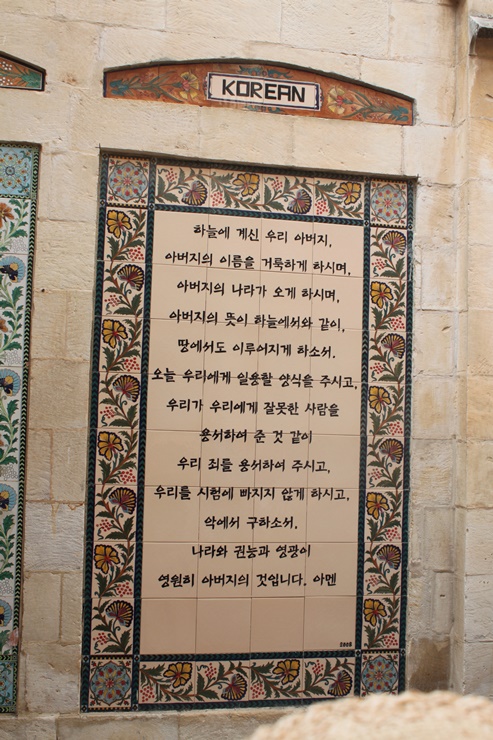 KOREAN
하늘에 계신 우리 아버지,
아버지의 이름을 거룩하게 하시며,
아버지의 나라가 오게 하시며,
아버지의 뜻이 하늘에서와 같이,
땅에서도 이루어지게 하소서.
오늘 우리에게 일용할 양식을 주시고,
우리가 우리에게 잘못한 사람을
용서하여 준 것 같이
우리 죄를 용서하여 주시고,
우리를 시험에 빠지지 않게 하시고,
악에서 구하소서.
나라와 권능과 영광이
영원히 아버지의 것입니다. 아멘